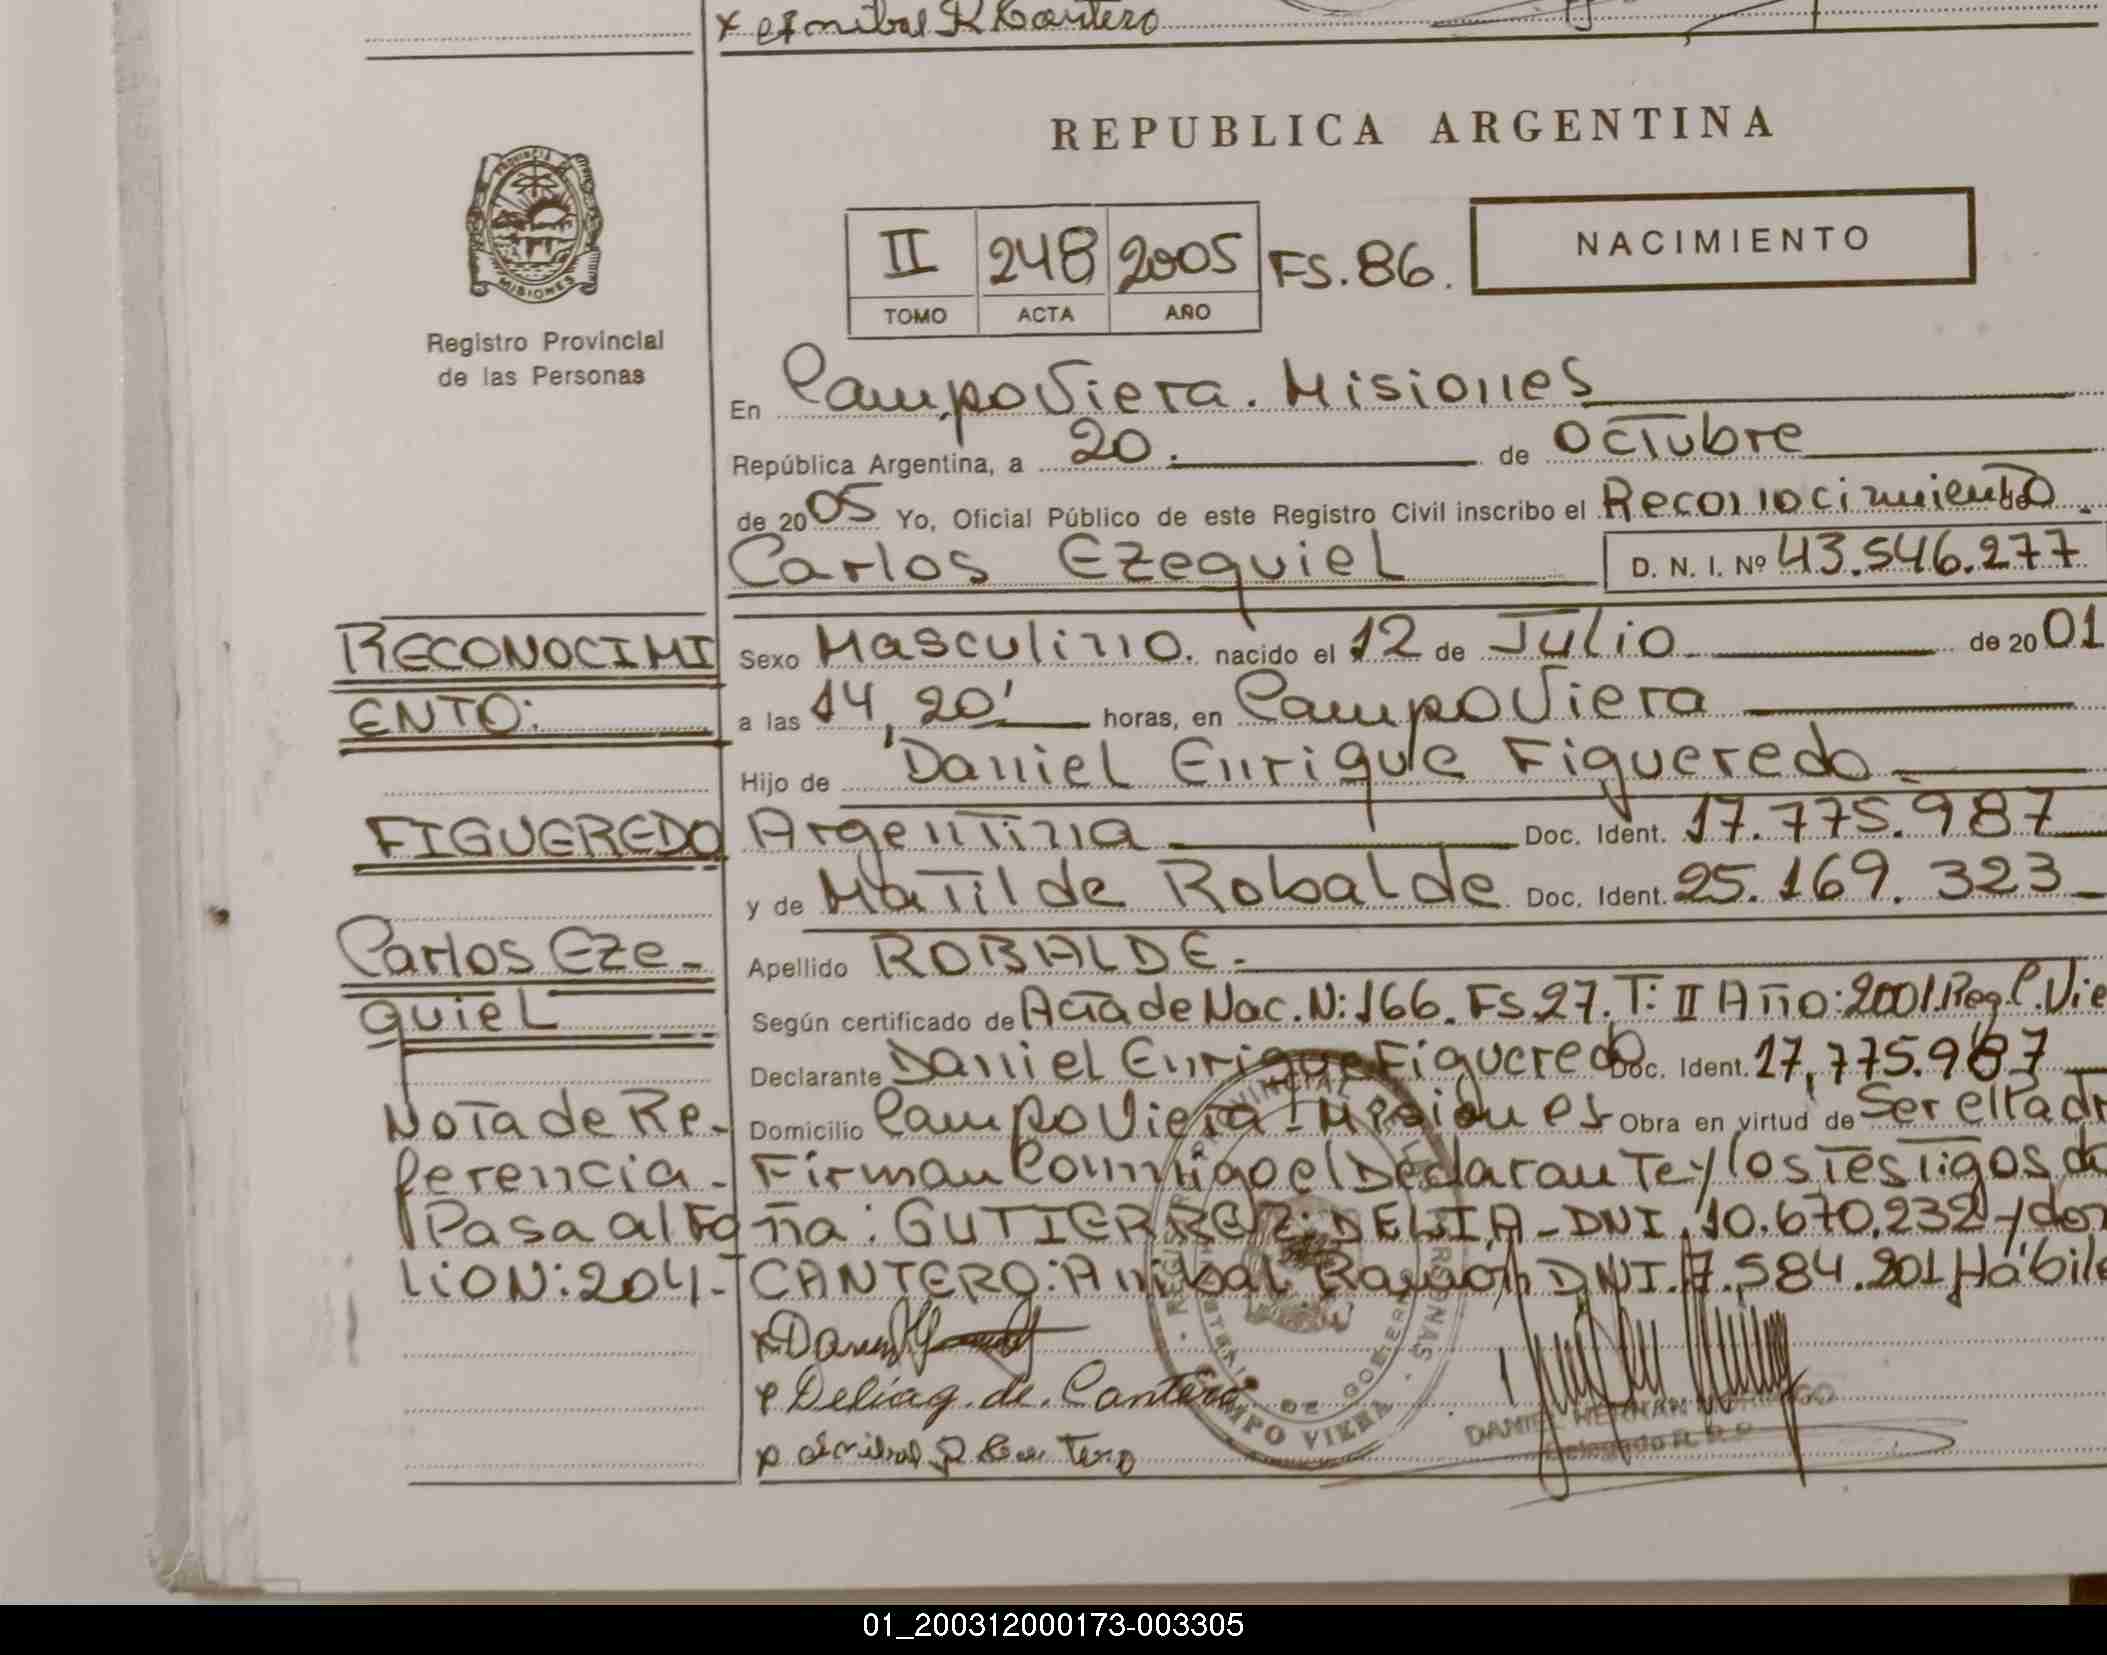 x Anibal R Cantero
REPUBLICA ARGENTINA
PROVINCIA DE
MISIONES
Registro Provincial
de las Personas
II 248 2005 FS. 86.
TOMO ACTA AÑO
NACIMIENTO
En Campo Viera. Misiones
República Argentina, a 20. de Octubre
de 2005 Yo, Oficial Público de este Registro Civil inscribo el Reconocimiento de
Carlos Ezequiel D. N. I. Nº 43.546.277
RECONOCIMI
ENTO:
FIGUEREDO
Carlos Eze-
quiel
Nota de Re-
ferencia-
Pasa al Fo
lio N: 204.-
Sexo Masculino. nacido el 12 de Julio de 2001
a las 14,20' horas, en Campo Viera
Hijo de Daniel Enrique Figueredo
Argentina Doc. Ident. 17.775.987
y de Matilde Robalde Doc. Ident. 25.169.323
Apellido ROBALDE.-
Según certificado de Acta de Nac. N: 166. Fs. 27. T: II Año: 2001. Reg. C. Vie
Declarante Daniel Enrique Figueredo Doc. Ident. 17,775.987
Domicilio Campo Viera - Misiones Obra en virtud de Ser el Padr
Firman Conmigo el Declarante y los Testigos do
ña: GUTIERREZ: DELIA - DNI. 10.670.232 y don
CANTERO: Anibal Ramón DNI. 7.584.201 Hábile
x Delia G. de Cantero
x Anibal R Cantero
CAMPO VIERA
DANIEL HERNAN
Delegado R. P. P.
01_200312000173-003305